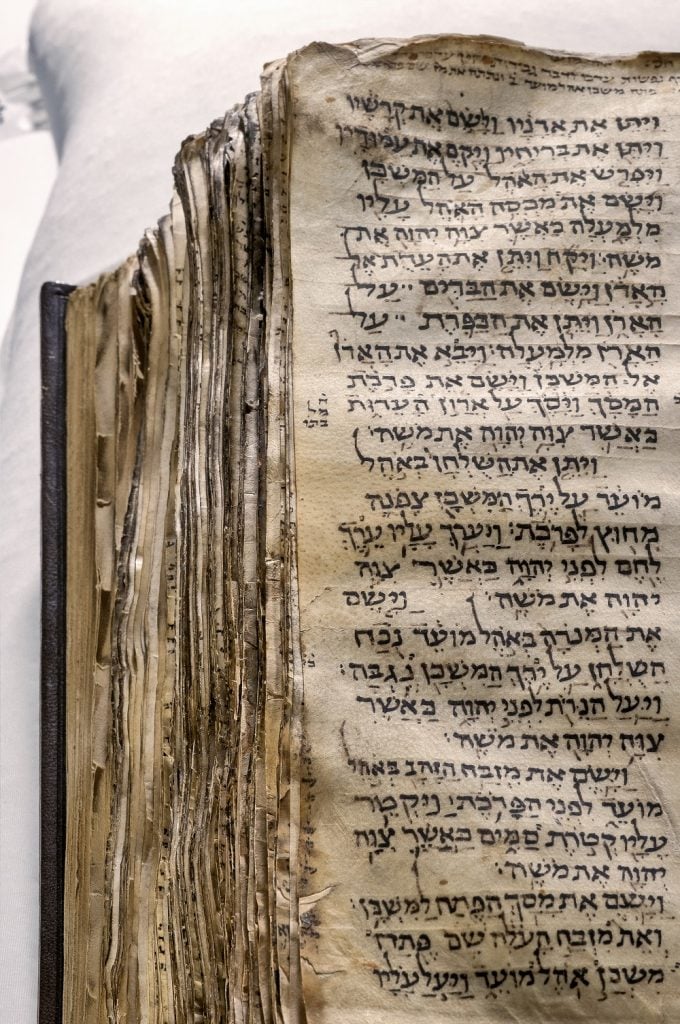 ויתן את אדניו וישם את קרשיו
ויתן את בריחיו ויקם את עמודיו
ויפרש את האהל על המשכן
וישם את מכסה האהל עליו
מלמעלה כאשר צוה יהוה את
משה׃ ויקח ויתן את העדת אל
הארן וישם את הבדים על
הארן ויתן את הכפרת על
הארן מלמעלה׃ ויבא את הארן
אל המשכן וישם את פרכת
המסך ויסך על ארון העדות
כאשר צוה יהוה את משה׃
ויתן את השלחן באהל
מועד על ירך המשכן צפנה
מחוץ לפרכת׃ ויערך עליו ערך
לחם לפני יהוה כאשר צוה
יהוה את משה׃ וישם
את המנרה באהל מועד נכח
השלחן על ירך המשכן נגבה׃
ויעל הנרת לפני יהוה כאשר
צוה יהוה את משה׃
וישם את מזבח הזהב באהל
מועד לפני הפרכת׃ ויקטר
עליו קטרת סמים כאשר צוה
יהוה את משה׃
וישם את מסך הפתח למשכן׃
ואת מזבח העלה שם פתח
משכן אהל מועד ויעל עליו